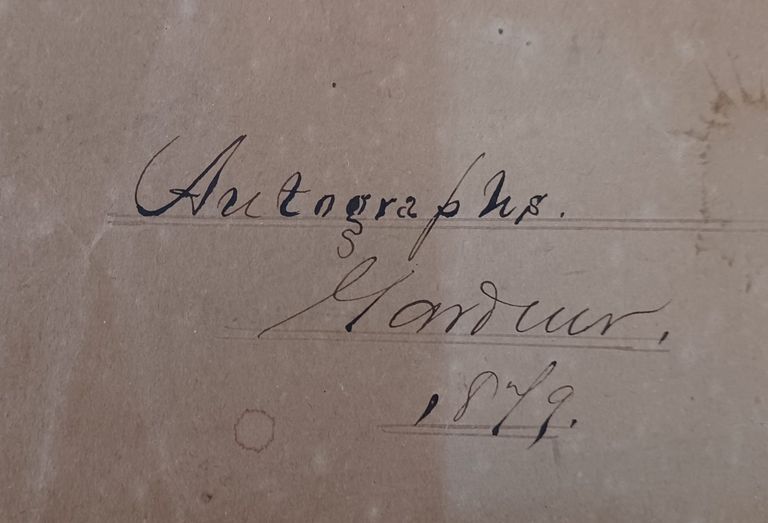 Autographs.
Gardner,
1879.